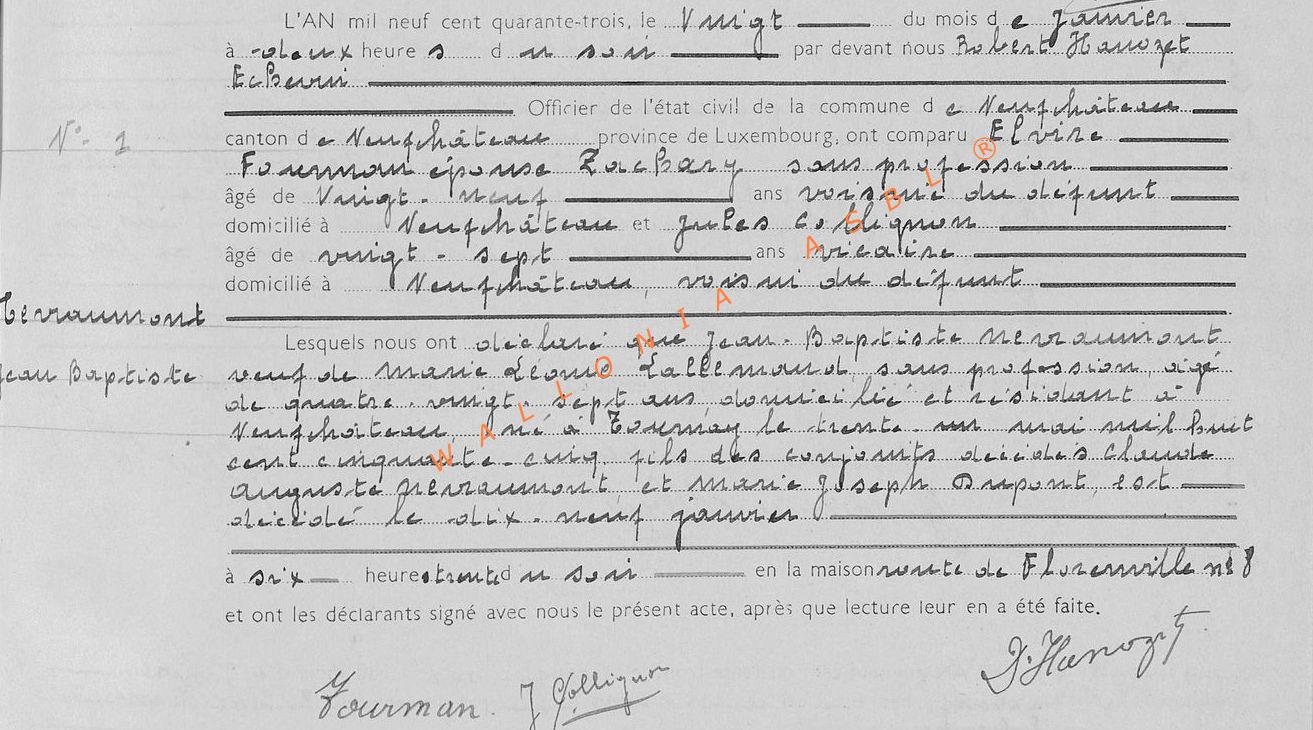 L'AN mil neuf cent quarante-trois, le Vingt du mois d e Janvier
à deux heure s d u soir par devant nous Robert Hanozet
Echevin
Officier de l'état civil de la commune d e Neufchâteau
N° 1
canton d e Neufchâteau province de Luxembourg, ont comparu Elvire
Fourman épouse Zachary sans profession
âgé de Vingt-neuf ans voisine du défunt
domicilié à Neufchâteau et Jules Collignon
âgé de vingt-sept ans vicaire
domicilié à Neufchâteau, voisin du défunt
Nevraumont
Lesquels nous ont déclaré que Jean-Baptiste Nevraumont
Jean Baptiste
veuf de Marie Lallemand, sans profession, âgé
de quatre-vingt-sept ans, domicilié et résidant à
Neufchâteau, né à Tournay le trente-un mai mil huit
cent cinquante-cinq, fils des conjoints décédés Claude
Auguste Nevraumont, et Marie Joseph Dupont, est
décédé le dix-neuf janvier
à six heures trente d u soir en la maison route de Florenville n° 8
et ont les déclarants signé avec nous le présent acte, après que lecture leur en a été faite.
Fourman. J Collignon
R. Hanozet
WALLONIA ASBL ®